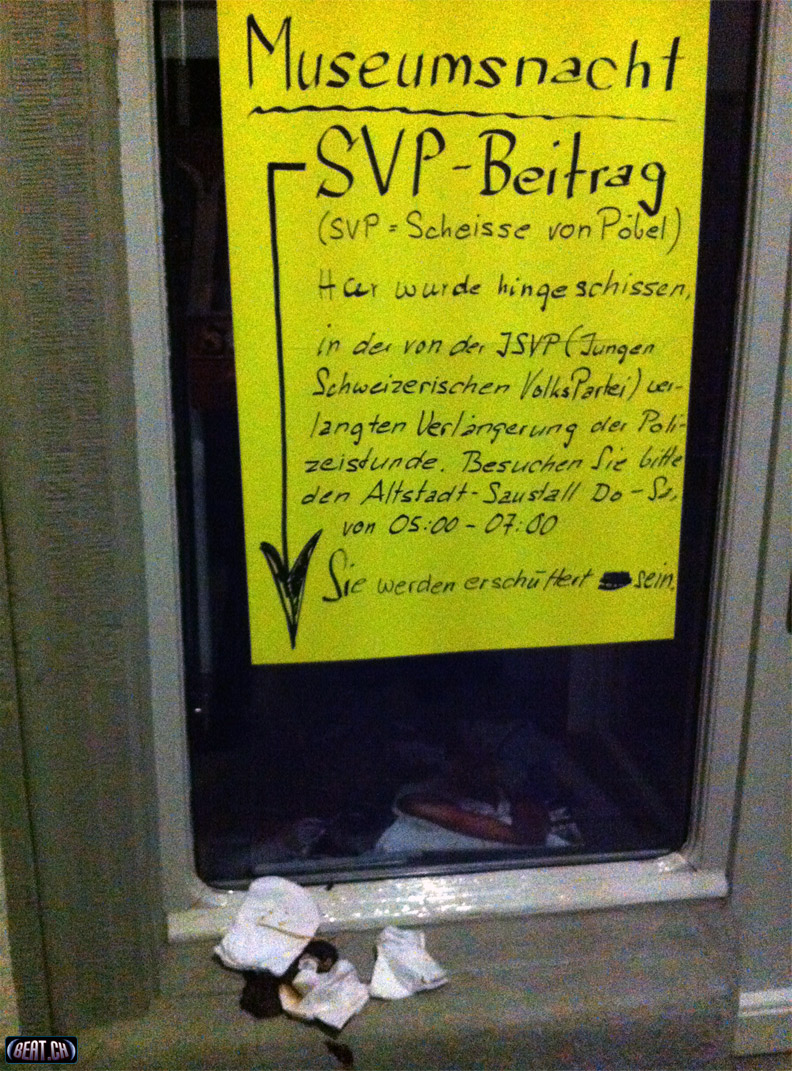 Museumsnacht
SVP-Beitrag
(SVP = Scheisse von Pöbel)
Hier wurde hingeschissen,
in der von der JSVP (Jungen
Schweizerischen VolksPartei) ver-
langten Verlängerung der Poli-
zeistunde. Besuchen Sie bitte
den Altstadt-Saustall Do-Sa,
von 05:00 - 07:00
Sie werden erschüttert sein.
BEAT.CH